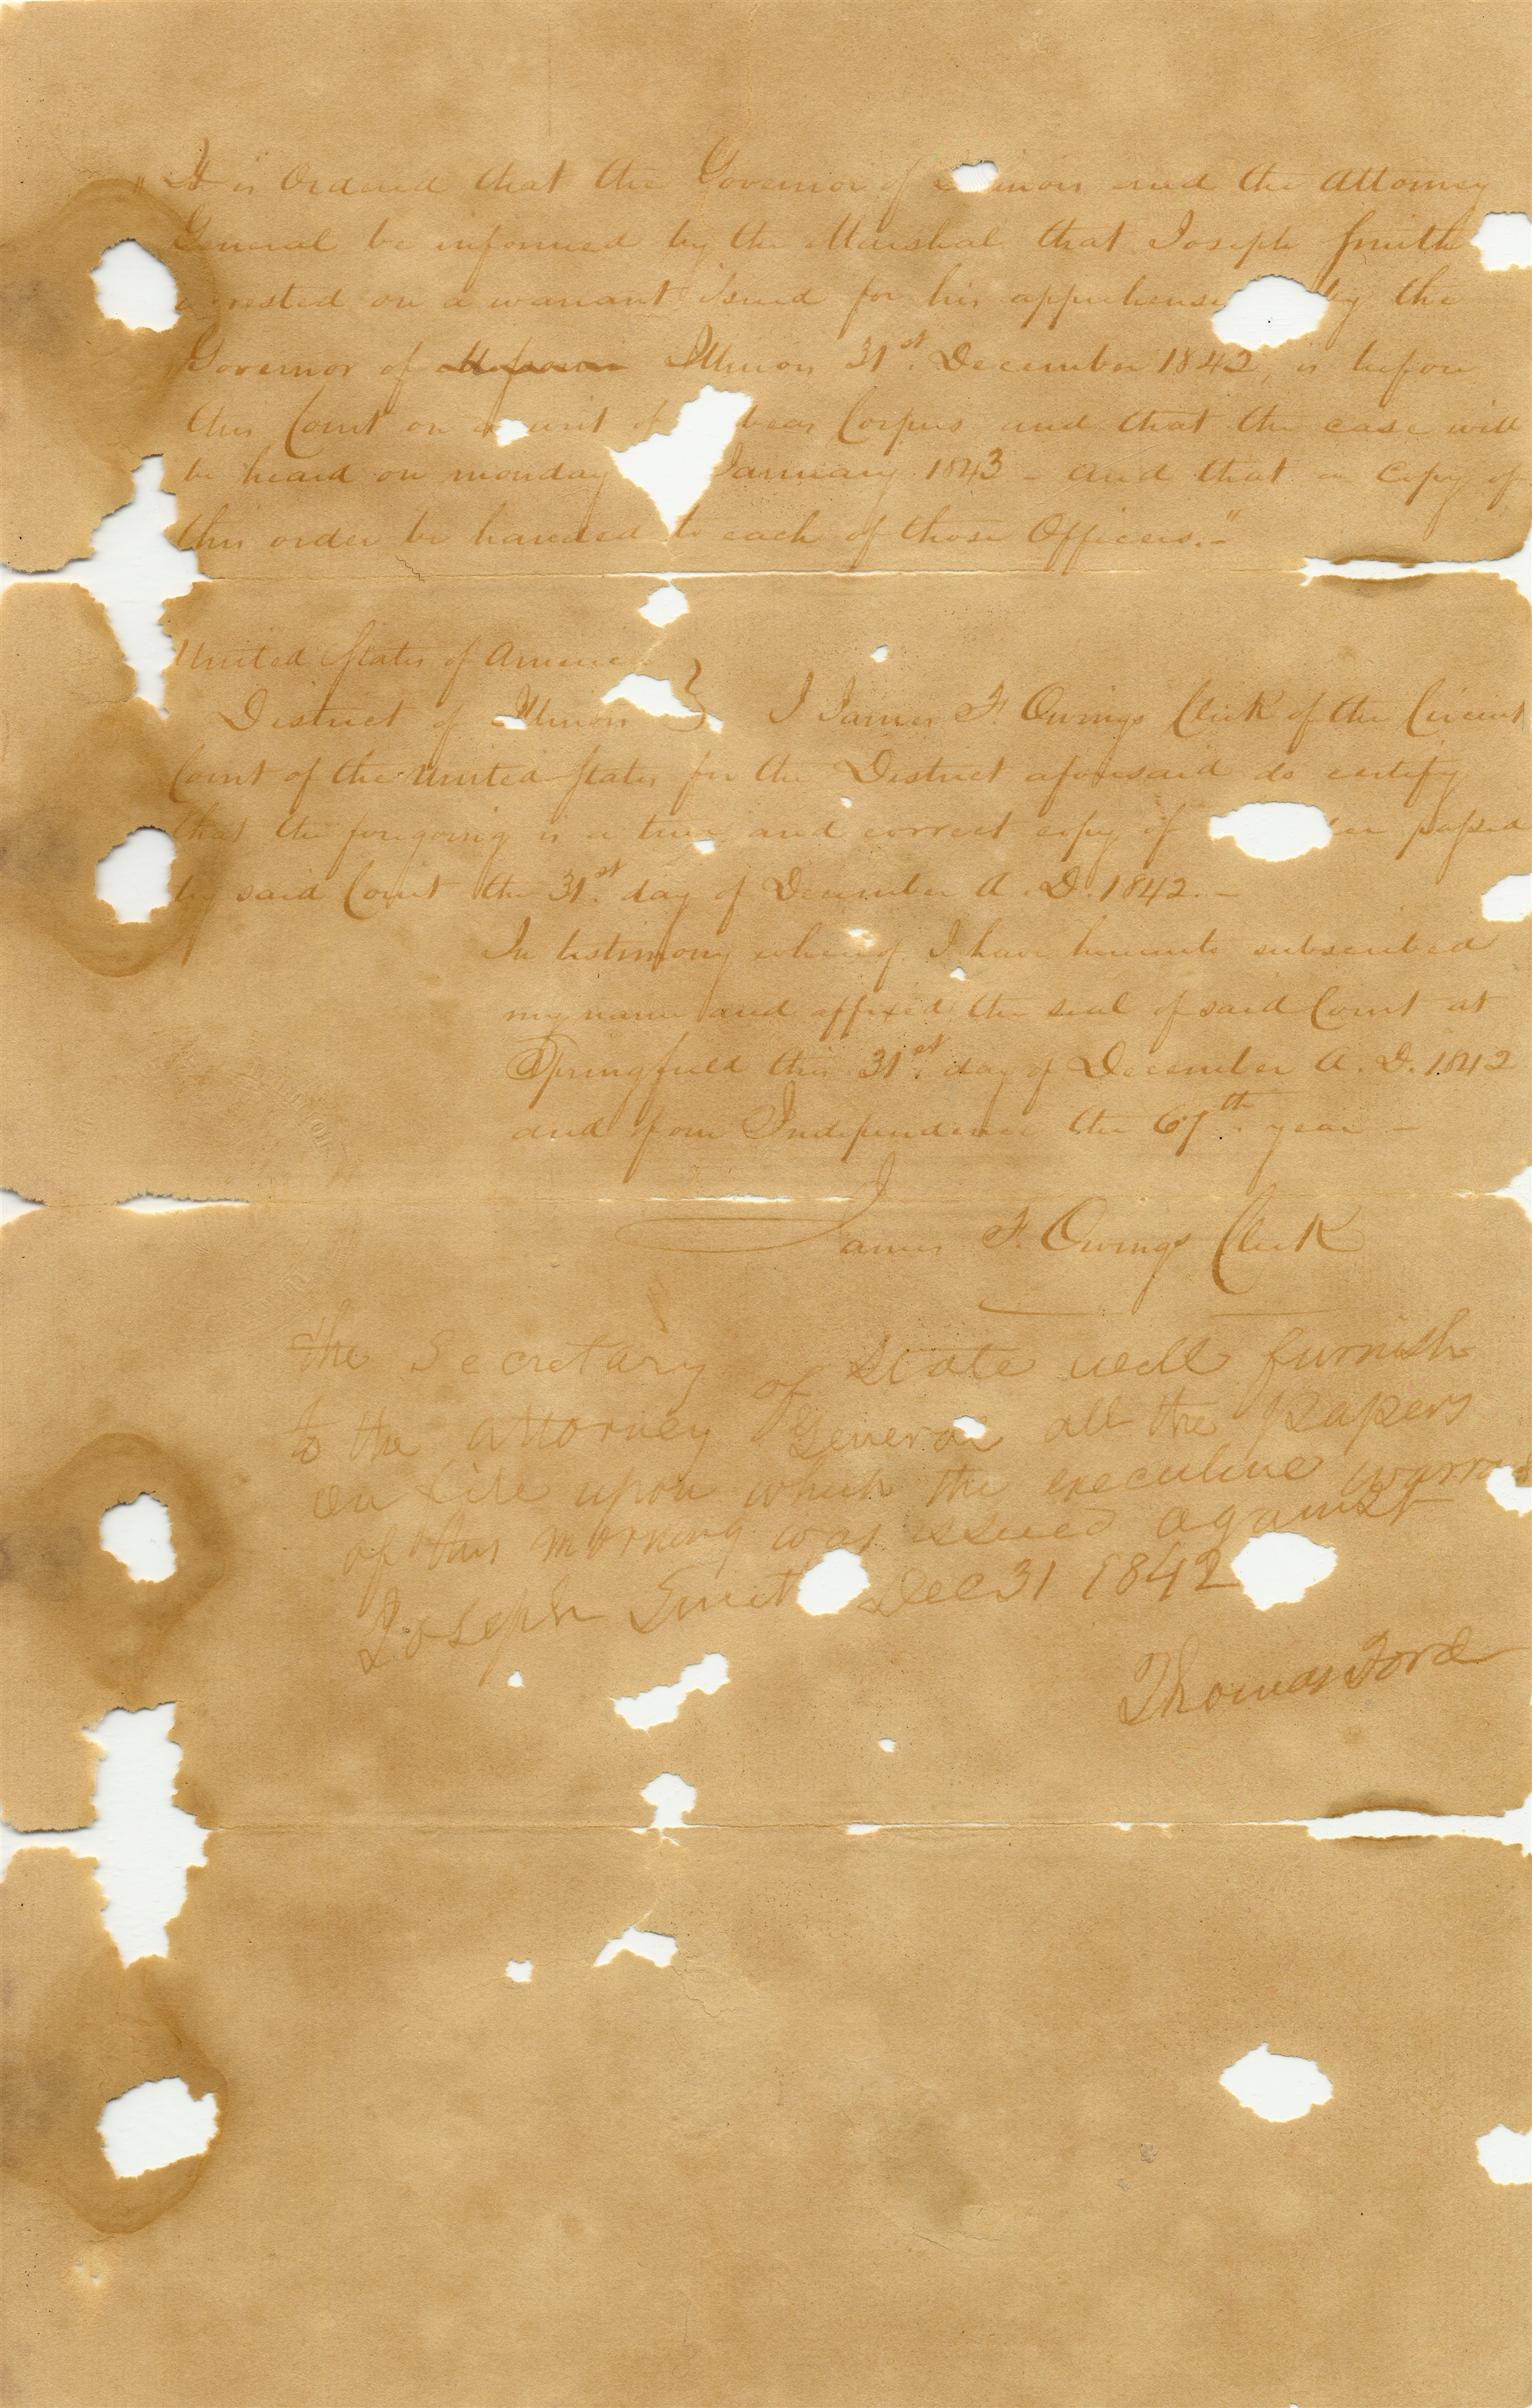 "It is Ordered that the Governor of inois and the Attorney
General be informed by the Marshal that Joseph Smith
arrested on a warrant Issued for his apprehensi by the
Governor of Missouri Illinois 31st. December 1842, is before
this Court on a writ of beas Corpus and that the case will
be heard on monday January 1843 - and that a Copy of
this order be handed to each of those Officers.-"
United States of America
District of Illinois } I James F. Owings Clerk of the Circuit
Court of the United States for the District aforesaid do certify
that the foregoing is a true and correct copy of er passed
by said Court the 31st. day of December A. D. 1842.-
In testimony whereof I have hereunto subscribed
my name and affixed the seal of said Court at
Springfield this 31st. day of December A. D. 1842
and of our Independence the 67th. year -
James F. Owings Clerk
The Secretary of State will furnish
to the attorney General all the papers
on file upon which the executive warra
of this morning was issued against
Joseph Smith Dec 31 1842
Thomas Ford